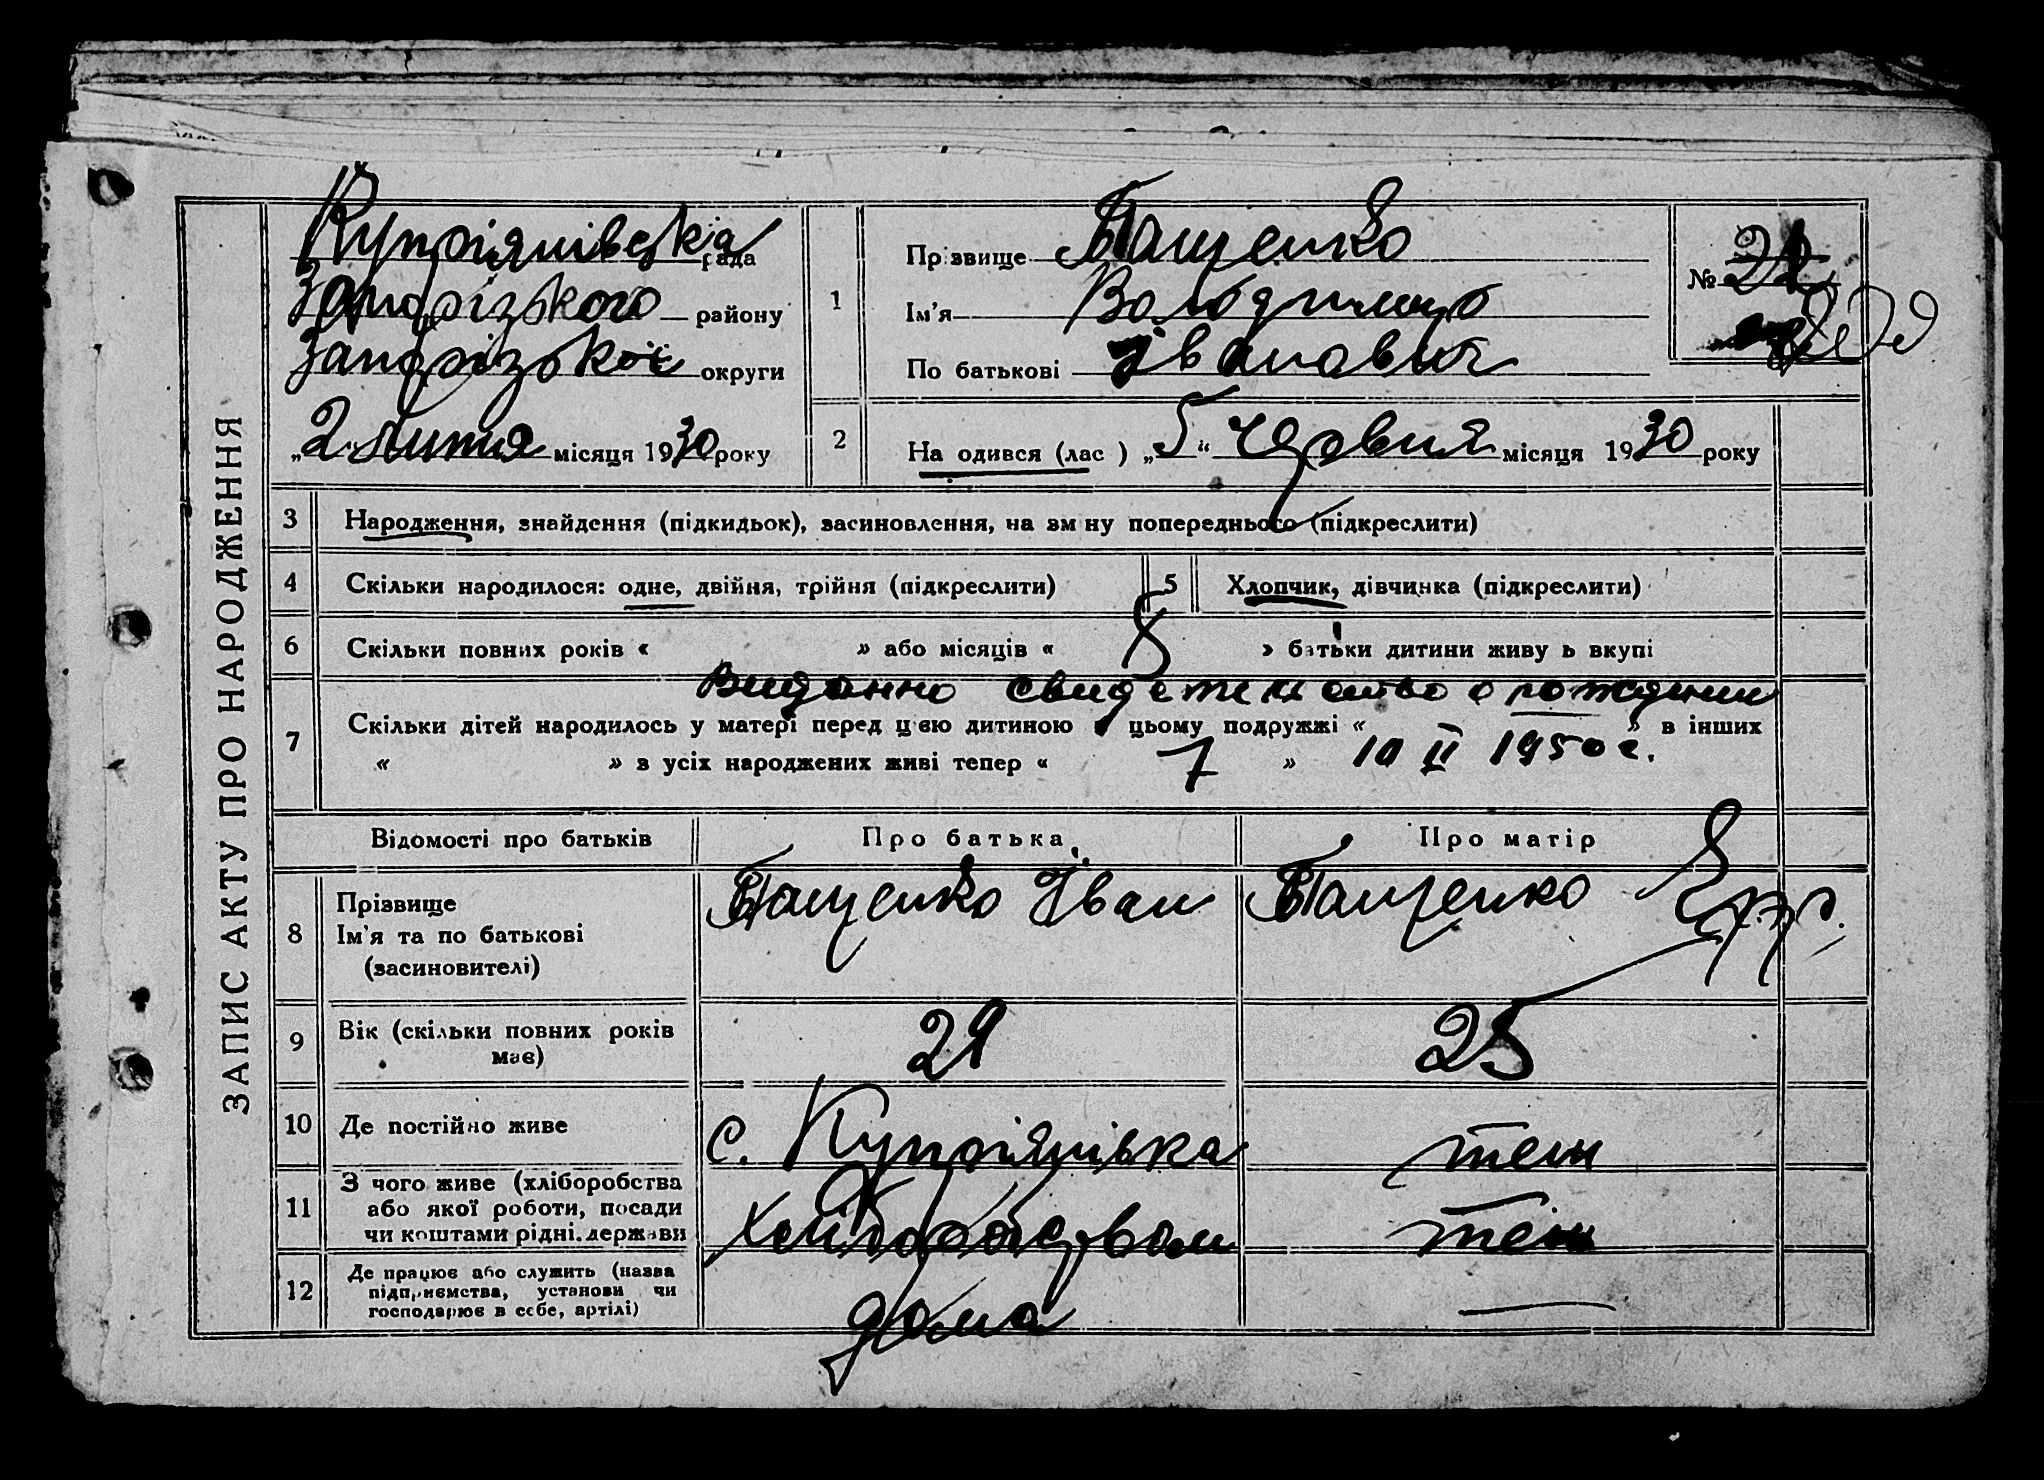 ЗАПИС АКТУ ПРО НАРОДЖЕННЯ
Купріянівська рада
Запорізького району
Запорізької округи
„2 липня місяця 1930 року
1
Прізвище Пащенко
Ім'я Володимир
По батькові Іванович
№ 21
2
На одився (лас ) „5“ червня місяця 1930 року
3 Народження, знайдення (підкидьок), засиновлення, на зм ну попереднього (підкреслити)
4 Скільки народилося: одне, двійня, трійня (підкреслити)
5 Хлопчик, дівчинка (підкреслити)
6 Скільки повних років « » або місяців « 8 » батьки дитини живу ь вкупі
Виданно свидетельство о рождении
7 Скільки дітей народилось у матері перед цією дитиною цьому подружжі « » в інших
« » в усіх народжених живі тепер « 7 » 10 II 1950 г.
Відомості про батьків Про батька Про матір
8 Прізвище
Ім'я та по батькові
(засиновителі)
Пащенко Іван
Пащенко
9 Вік (скільки повних років має)
29
25
10 Де постійно живе
с. Купріянівка
теж
11 З чого живе (хліборобства
або якої роботи, посади
чи коштами рідні. держави
хліборобством
теж
12 Де працює або служить (назва
підприємства, установи чи
господарює в себе, артілі)
дома